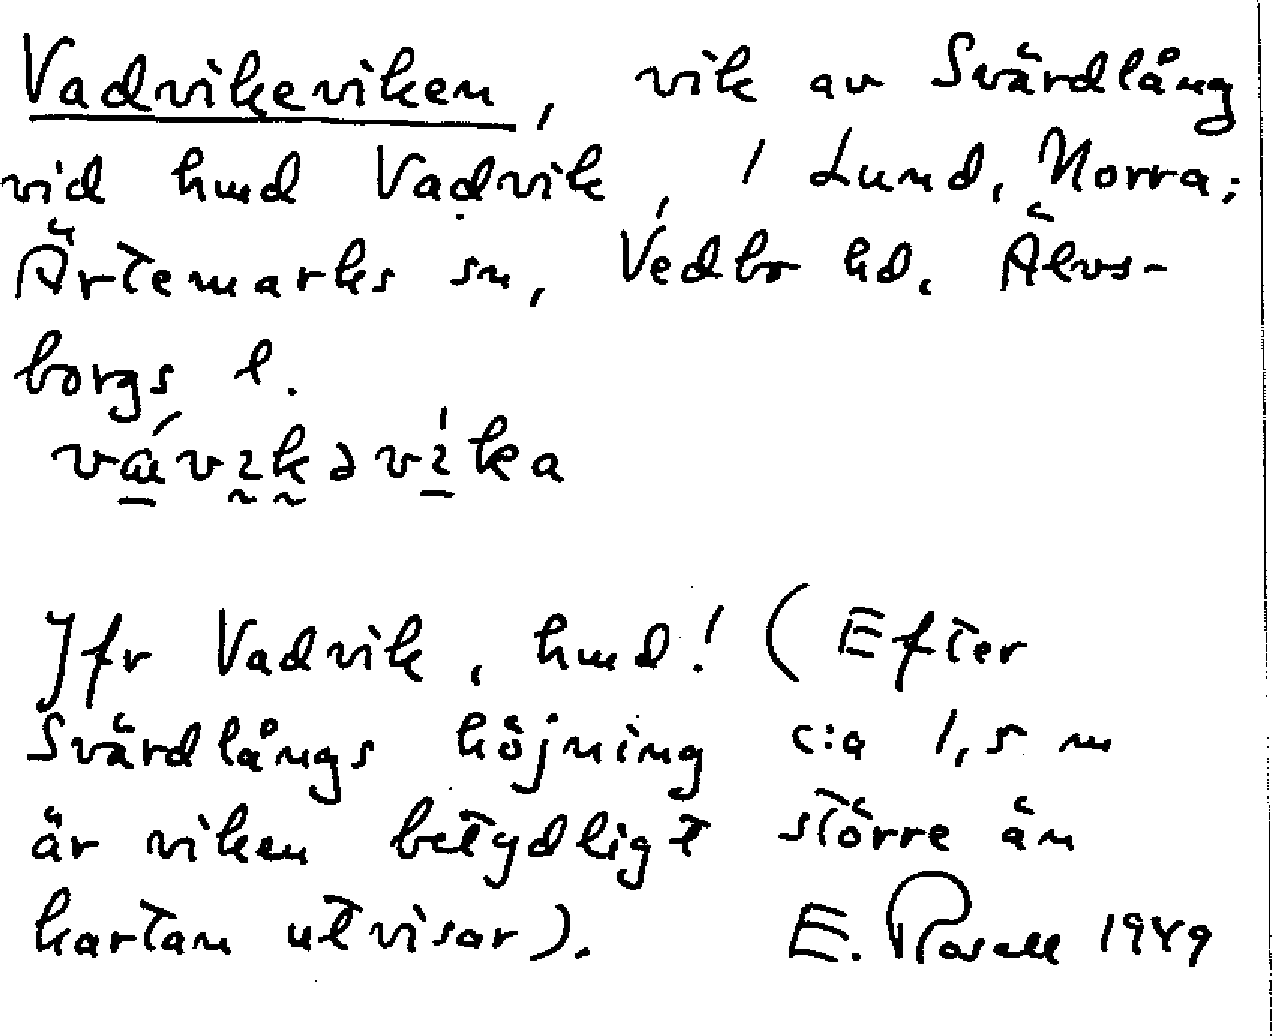 Vadvikeviken, vik av Svärdlång
vid hmd Vadvik, 1 Lund, Norra;
Ärtemarks sn, Vedbo hd. Älvs-
borgs l.
Jfr Vadvik, hmd! (Efter
Svärdlångs höjning c:a 1,5 m
är viken betydligt större än
kartan utvisar). E. Rosell 1949